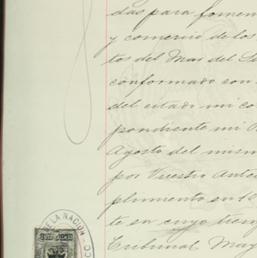 das para fomen
y comercio de los
tos del Mar del Su
conformado con
del estado mi co
pondiente mi R
Agosto del mism
por Vuestro Ante
plimento en
te en cuyo tiem
Tribunal May
DE LA NACION